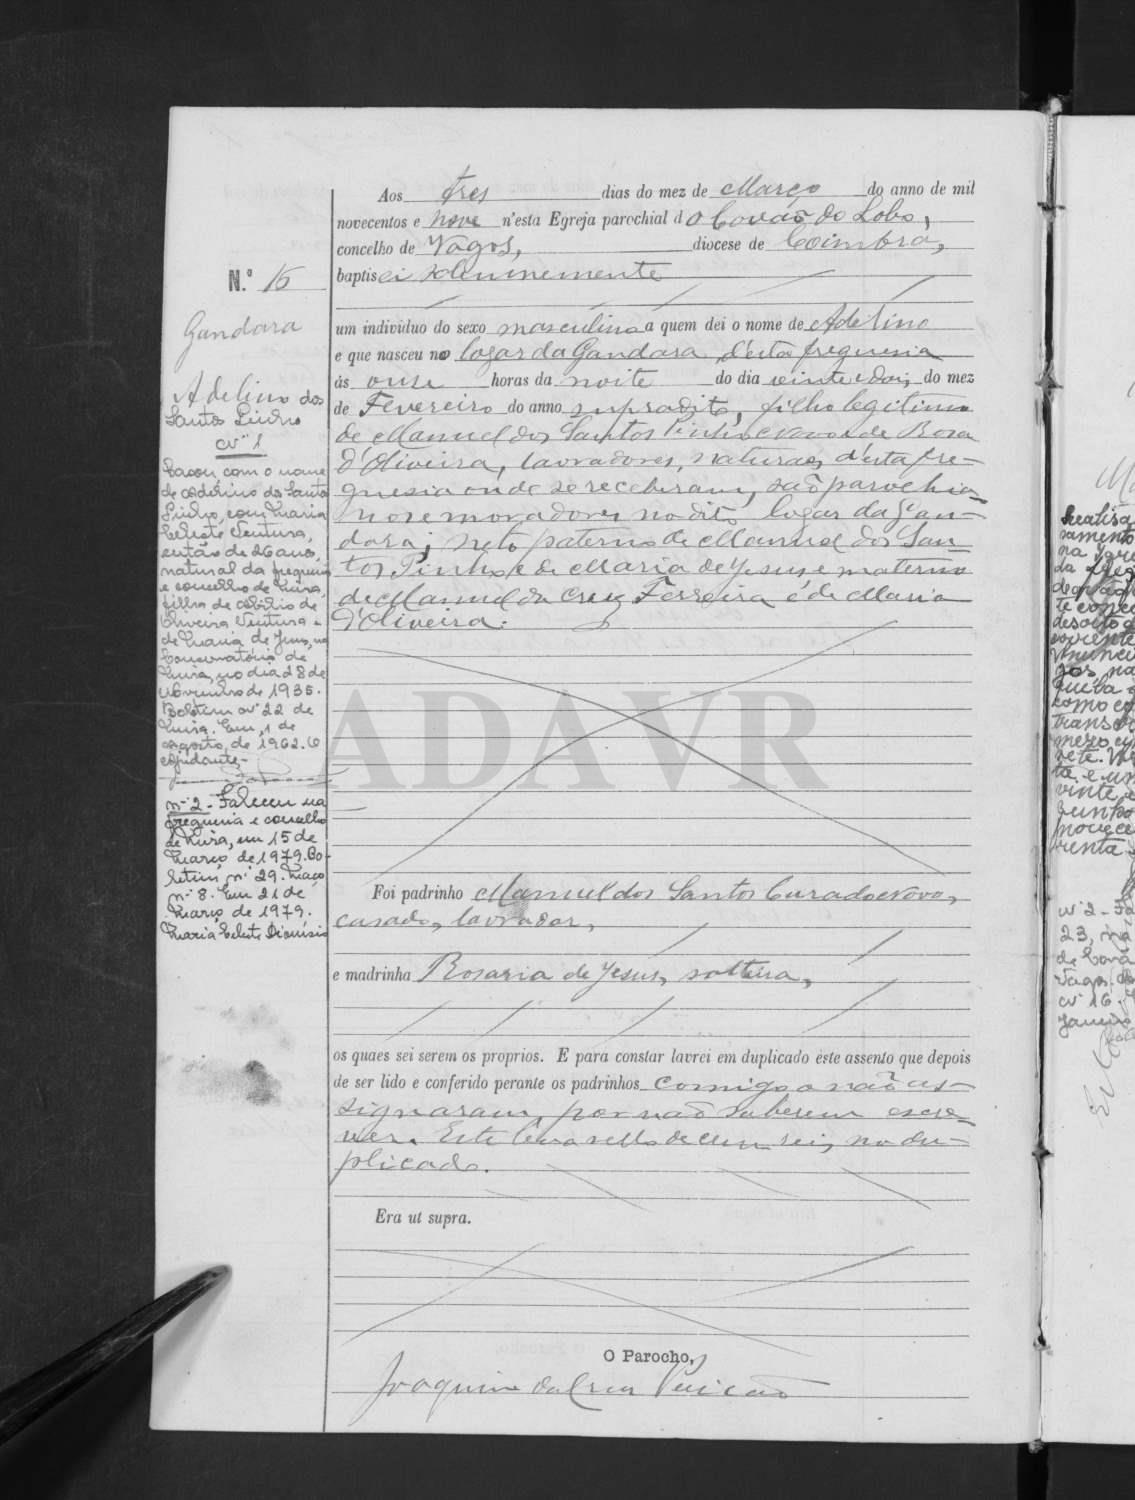 Aos tres dias do mez de Março do anno de mil
novecentos e nove n'esta Egreja parochial do Covão do Lobo,
concelho de Vagos, diocese de Coimbra,
baptisei solemnemente
N.º 15
Gandara
um individuo do sexo masculino a quem dei o nome de Adelino
e que nasceu no logar da Gandara d'esta freguesia
ás onse horas da noite do dia vinte e dois do mez
de Fevereiro do anno supradito, filho legitimo
de Manuel dos Santos Pinho e de Rosa
d'Oliveira, lavradores, naturaes d'esta fre-
guesia onde se receberam, são parochia-
nos e moradores no dito logar da Gan-
dara; neto paterno de Manuel dos San-
tos Pinho e de Maria de Jesus e materno
de Manuel da Cruz Ferreira e de Maria
d'Oliveira.
Adelino dos
Santos Pinho
Nº 1
Casou com o nome
de Adelino dos Santos
Pinho, com Maria
Celeste Ventura,
então de 26 anos,
natural da freguesia
e concelho de Mira,
filha de Abilio de
Oliveira Ventura e
de Maria de Jesus, na
Conservatória de
Mira, no dia 28 de
Novembro de 1935.
Boletim nº 22 de
Mira. Em 1 de
Agosto de 1962. O
ajudante,
nº 2 - Faleceu na
freguesia e concelho
de Mira, em 15 de
Março de 1979. Bo-
letim nº 29. Maço
nº 8. Em 21 de
Março de 1979.
Maria Celeste Dionísio
ADAVR
Foi padrinho Manuel dos Santos Curado Novo,
casado, lavrador,
e madrinha Rosaria de Jesus, solteira,
os quaes sei serem os proprios. E para constar lavrei em duplicado este assento que depois
de ser lido e conferido perante os padrinhos comigo o não as-
signaram, por não saberem escre-
ver. Este leva sello de cem reis no du-
plicado.
Era ut supra.
O Parocho,
Joaquim da Cruz